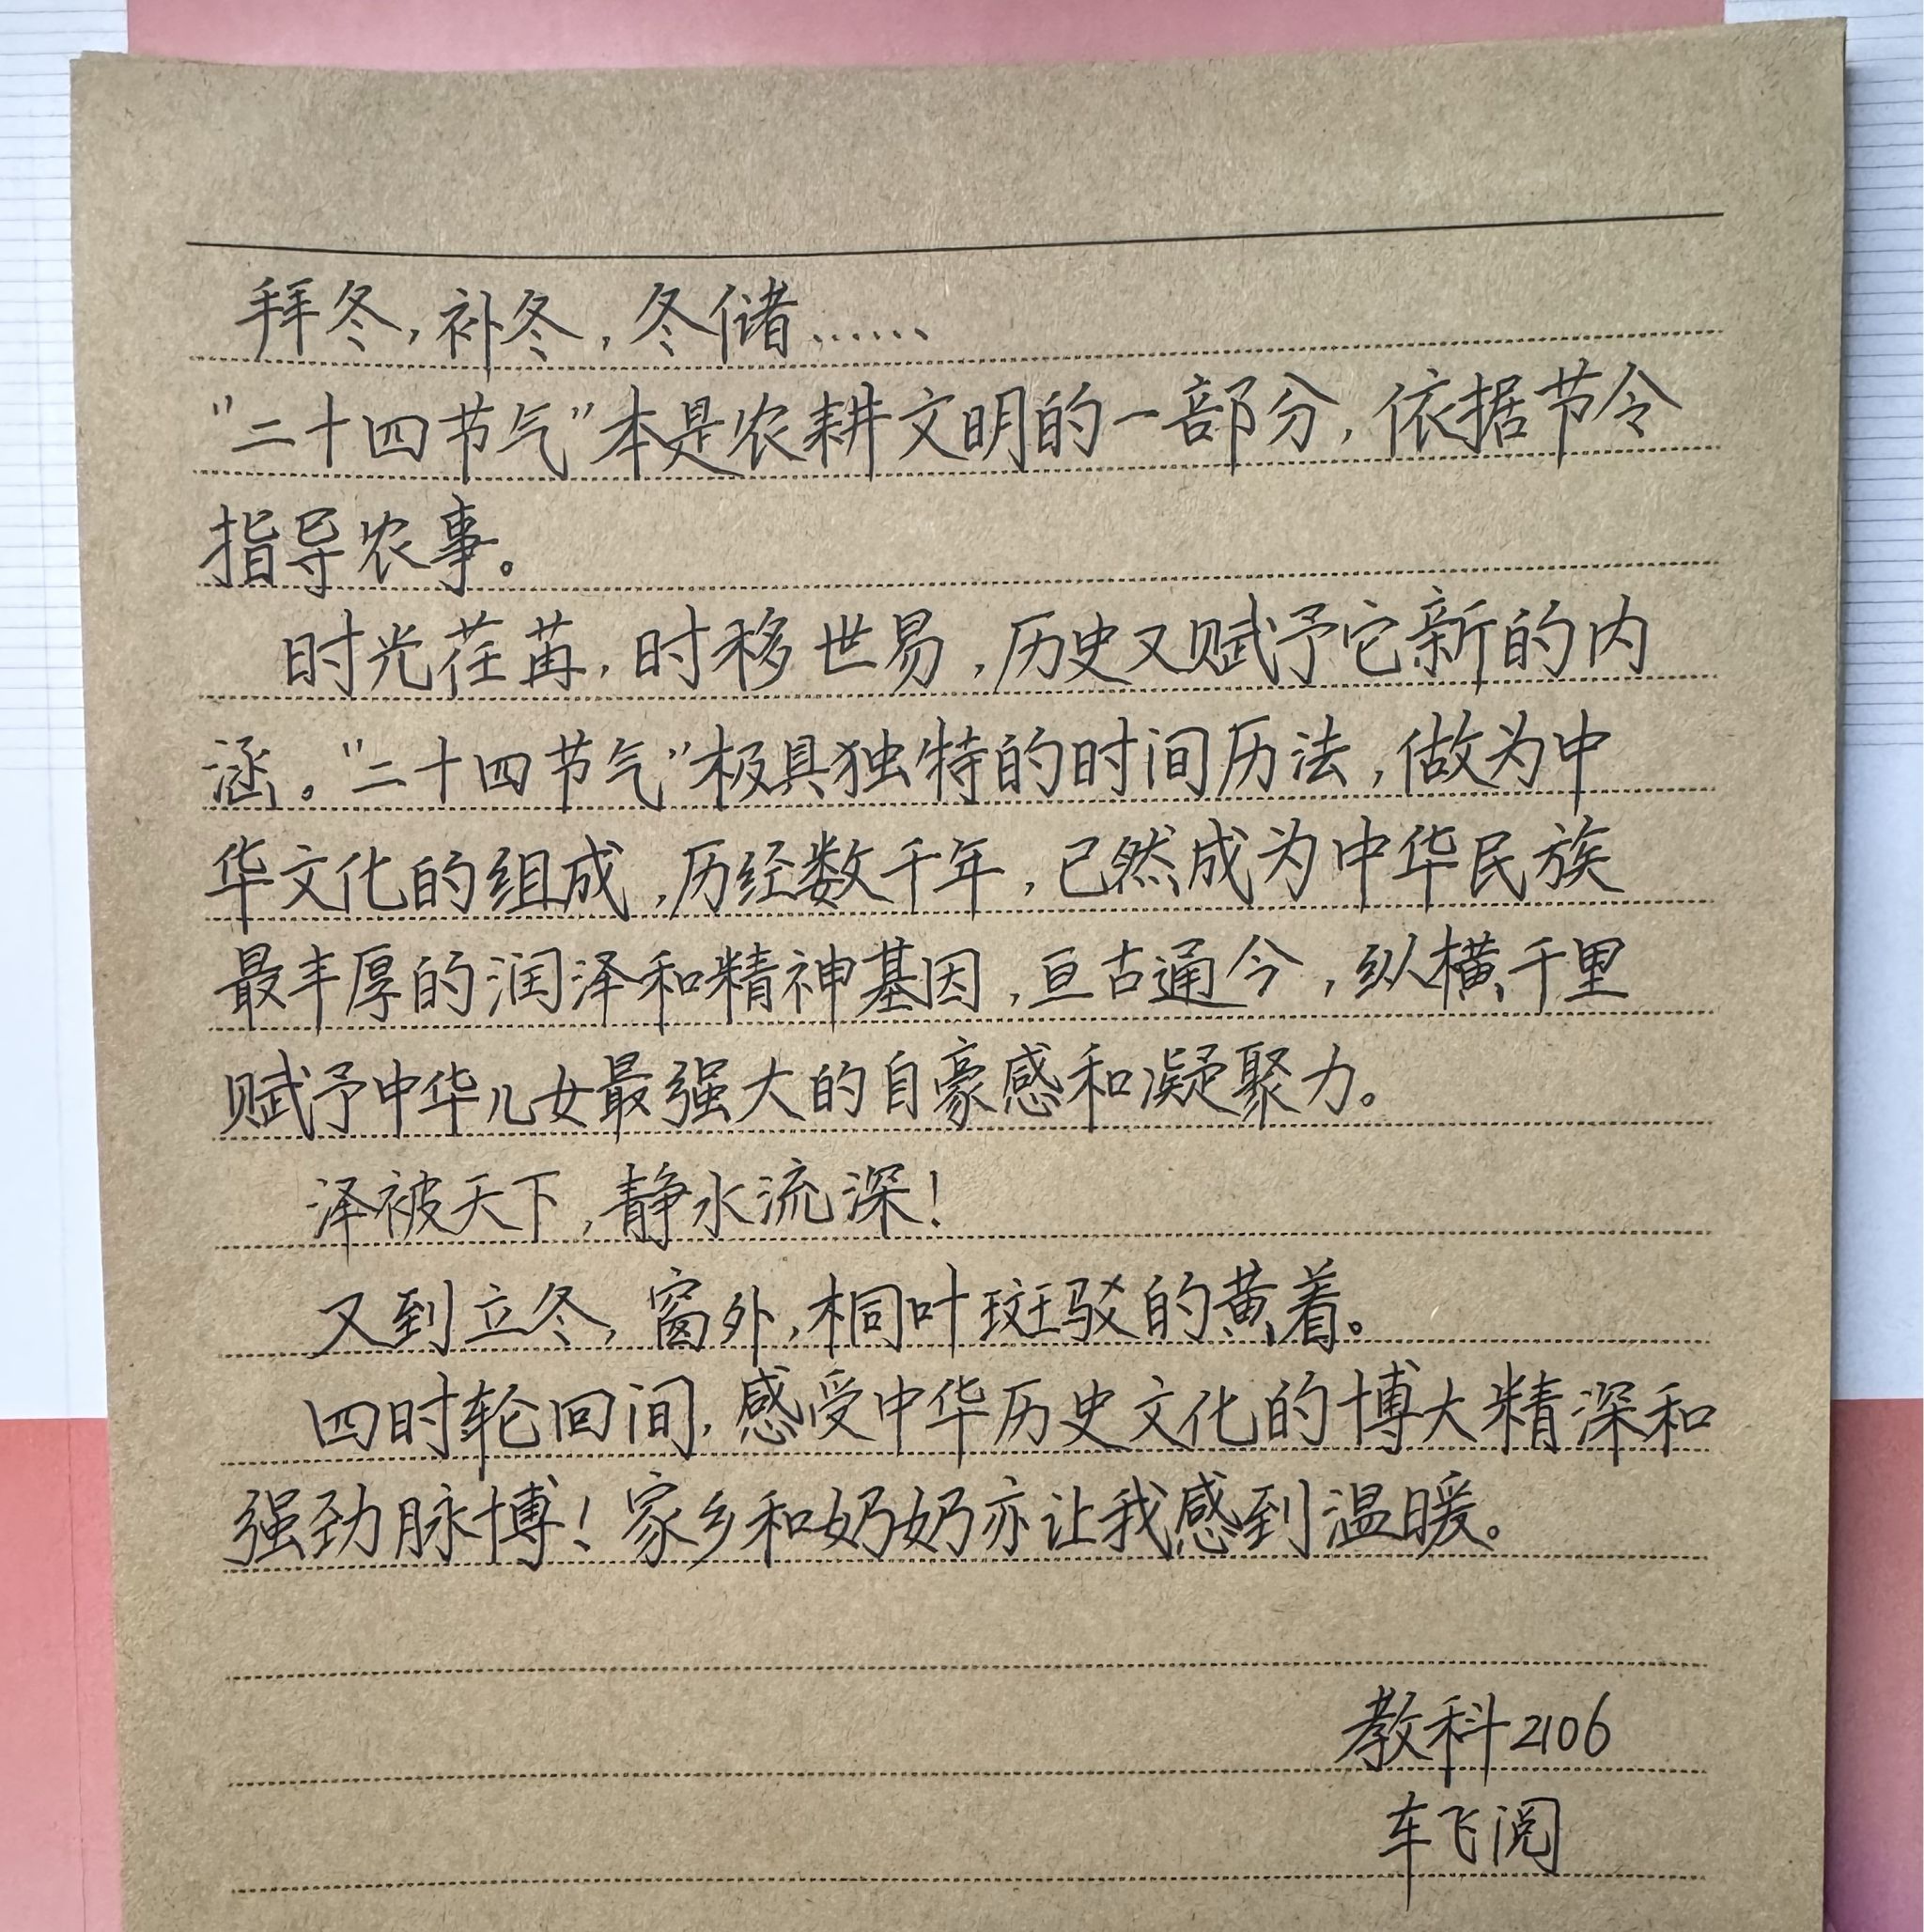 拜冬,补冬,冬储……
“二十四节气”本是农耕文明的一部分,依据节令
指导农事。
时光荏苒,时移世易,历史又赋予它新的内
涵。“二十四节气”极具独特的时间历法,做为中
华文化的组成,历经数千年,已然成为中华民族
最丰厚的润泽和精神基因,亘古通今,纵横千里
赋予中华儿女最强大的自豪感和凝聚力。
泽被天下,静水流深!
又到立冬,窗外,桐叶斑驳的黄着。
四时轮回间,感受中华历史文化的博大精深和
强劲脉博!家乡和奶奶亦让我感到温暖。
教科2106
车飞阅